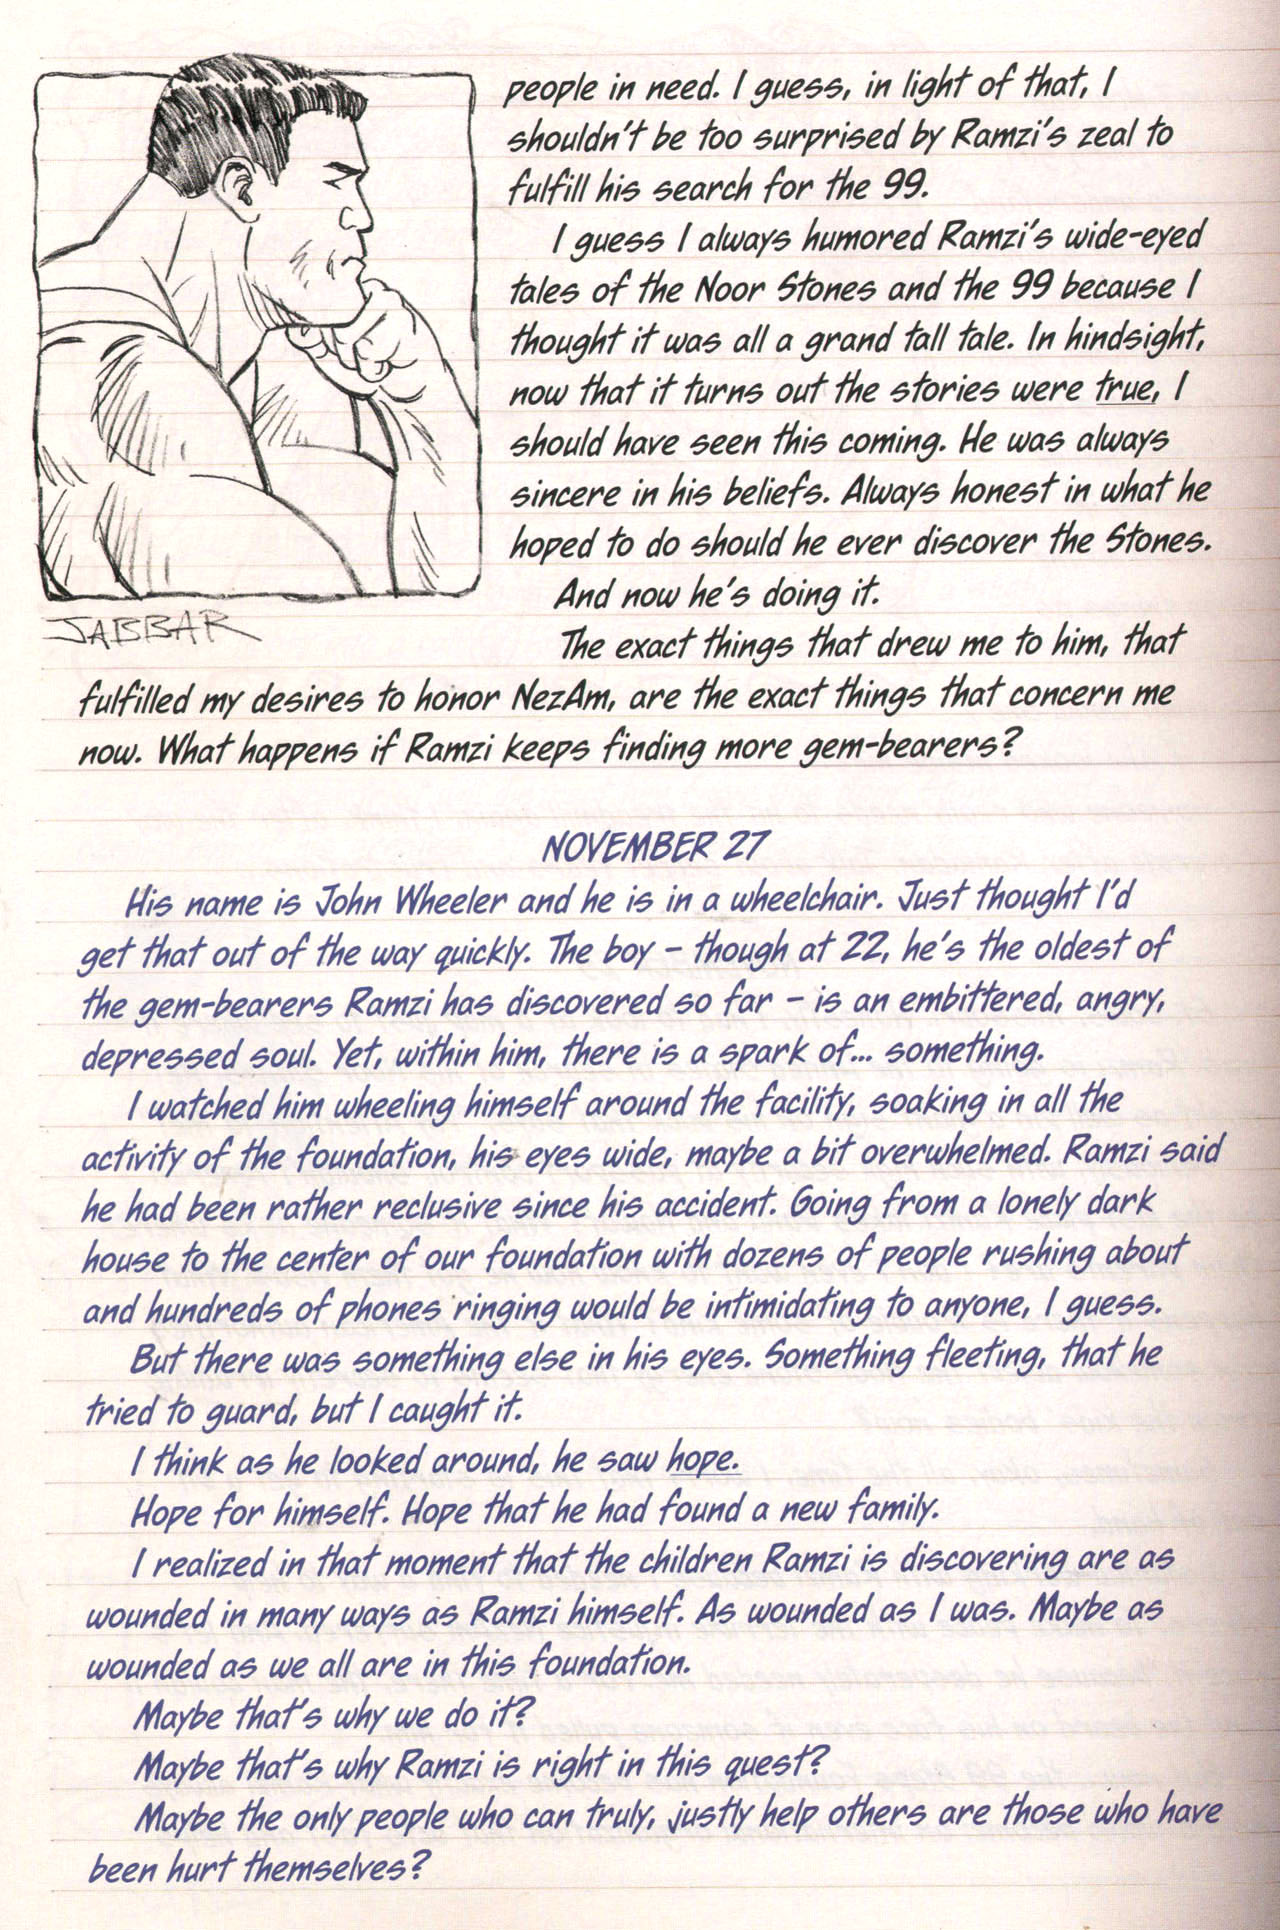 people in need. I guess, in light of that, I
shouldn't be too surprised by Ramzi's zeal to
fulfill his search for the 99.
I guess I always humored Ramzi's wide-eyed
tales of the Noor Stones and the 99 because I
thought it was all a grand tall tale. In hindsight,
now that it turns out the stories were true, I
should have seen this coming. He was always
sincere in his beliefs. Always honest in what he
hoped to do should he ever discover the Stones.
And now he's doing it.
JABBAR
The exact things that drew me to him, that
fulfilled my desires to honor NezAm, are the exact things that concern me
now. What happens if Ramzi keeps finding more gem-bearers?
NOVEMBER 27
His name is John Wheeler and he is in a wheelchair. Just thought I'd
get that out of the way quickly. The boy – though at 22, he's the oldest of
the gem-bearers Ramzi has discovered so far – is an embittered, angry,
depressed soul. Yet, within him, there is a spark of... something.
I watched him wheeling himself around the facility, soaking in all the
activity of the foundation, his eyes wide, maybe a bit overwhelmed. Ramzi said
he had been rather reclusive since his accident. Going from a lonely dark
house to the center of our foundation with dozens of people rushing about
and hundreds of phones ringing would be intimidating to anyone, I guess.
But there was something else in his eyes. Something fleeting, that he
tried to guard, but I caught it.
I think as he looked around, he saw hope.
Hope for himself. Hope that he had found a new family.
I realized in that moment that the children Ramzi is discovering are as
wounded in many ways as Ramzi himself. As wounded as I was. Maybe as
wounded as we all are in this foundation.
Maybe that's why we do it?
Maybe that's why Ramzi is right in this quest?
Maybe the only people who can truly, justly help others are those who have
been hurt themselves?